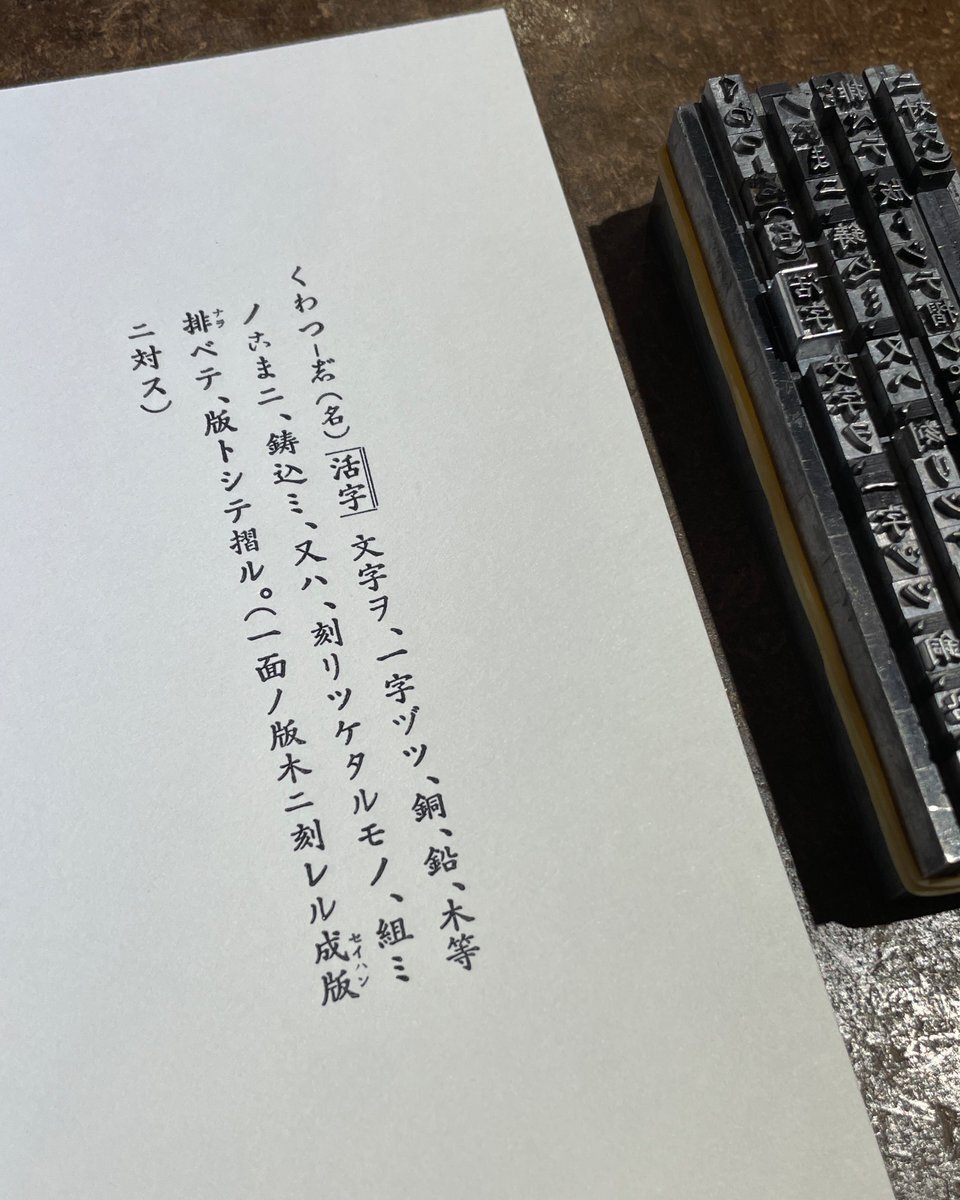 くわつ—𛁈゙（名）活字　文字ヲ、一字ヅツ、銅、鉛、木等
ノ𛀸まニ、鋳込ミ、又ハ、刻リツケタルモノ、組ミ
排ベテ、版トシテ摺ル。（一面ノ版木ニ刻レル成版
ニ対ス）